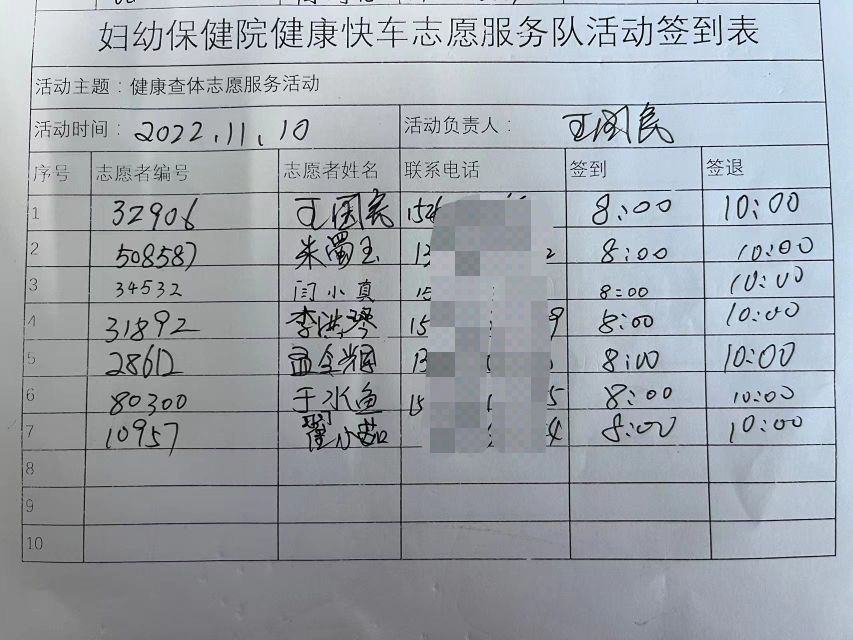 妇幼保健院健康快车志愿服务队活动签到表
活动主题：健康查体志愿服务活动
活动时间：2022.11.10 活动负责人：王国民
序号 志愿者编号 志愿者姓名 联系电话 签到 签退
1 32906 王国民 152 8:00 10:00
2 508587 朱蜀玉 13 2 8:00 10:00
3 34532 闫小真 15 8:00 10:00
4 31892 李洪琴 15 9 8:00 10:00
5 28612 孟 13 8:00 10:00
6 80300 于水鱼 15 5 8:00 10:00
7 10957 翟小茹 4 8:00 10:00
8
9
10